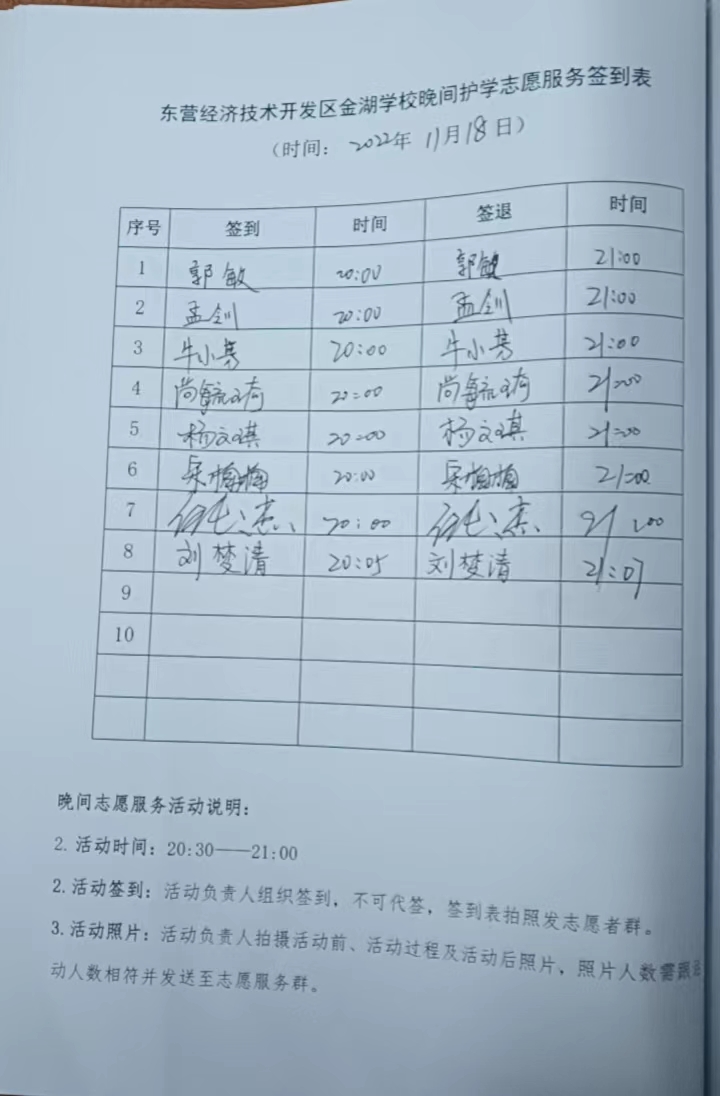 东营经济技术开发区金湖学校晚间护学志愿服务签到表
（时间：2022年 11月18日）
序号 签到 时间 签退 时间
1 郭敏 20:00 郭敏 21:00
2 孟剑 20:00 孟剑 21:00
3 牛小芳 20:00 牛小芳 21:00
4 尚毓琦 20:00 尚毓琦 21:00
5 杨文琪 20:00 杨文琪 21:00
6 梅梅 20:00 梅梅 21:00
7 20:00 21:00
8 刘梦清 20:05 刘梦清 21:07
9
10
晚间志愿服务活动说明：
2. 活动时间：20:30——21:00
2. 活动签到：活动负责人组织签到，不可代签，签到表拍照发志愿者群。
3. 活动照片：活动负责人拍摄活动前、活动过程及活动后照片，照片人数需跟
动人数相符并发送至志愿服务群。